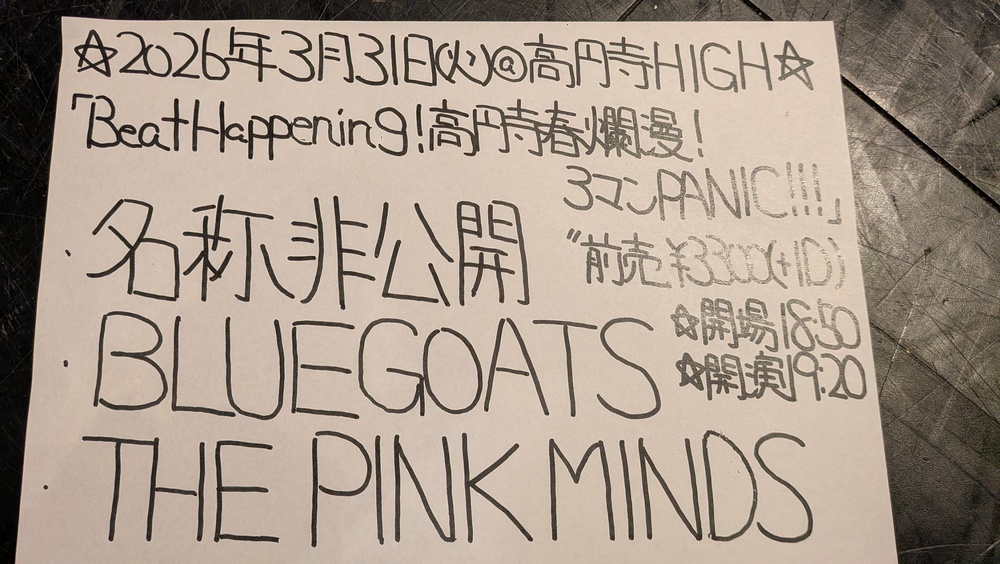 ☆2026年3月31日(火)@高円寺HIGH☆
「BeatHappening!高円寺春爛漫!
3マンPANIC!!!」
・名称非公開
"前売¥3300(+1D)
☆開場18:50
・BLUEGOATS
☆開演19:20
・THE PINK MINDS